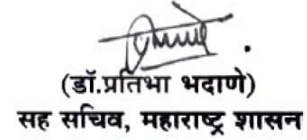 (डॉ.प्रतिभा भदाणे)
सह सचिव, महाराष्ट्र शासन